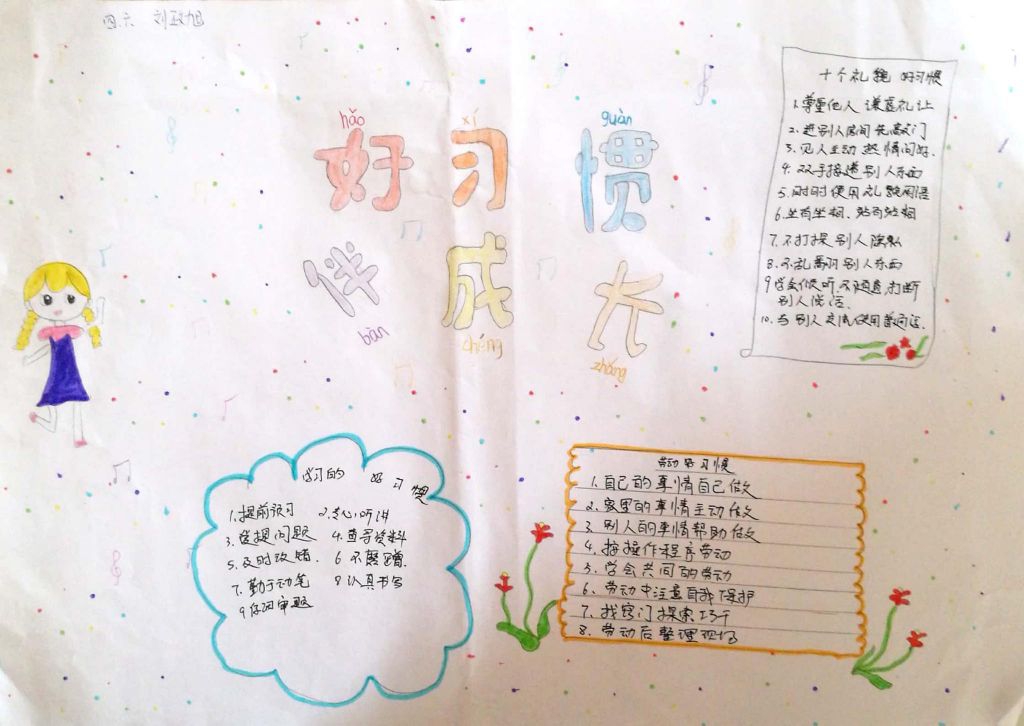 四.六 刘政旭
hǎo xí guàn
好习惯
伴成长
bàn chéng zhǎng
十个礼貌好习惯
1.尊重他人 谦虚礼让
2.进别人房间先敲门
3.见人主动热情问好.
4.双手接递别人东西
5.时时使用礼貌用语
6.坐有坐相、站有站相
7.不打探别人隐私
8.不乱翻别人东西
9学会倾听不随意打断
别人说话
10.与别人交流使用普通话.
学习的 好习惯
1.提前预习 2.专心听讲
3.善提问题 4.查寻资料
5.及时改错. 6不磨蹭.
7.勤于动笔 8认真书写
9仔细审题
劳动好习惯
1.自己的事情自己做
2.家里的事情主动做
3.别人的事情帮助做
4.按操作程序劳动
5.学会共同的劳动
6.劳动中注意自我保护
7.找窍门探索巧干
8.劳动后整理现场